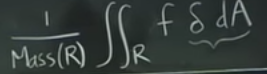 1/Mass(R) ∬_R f δ dA